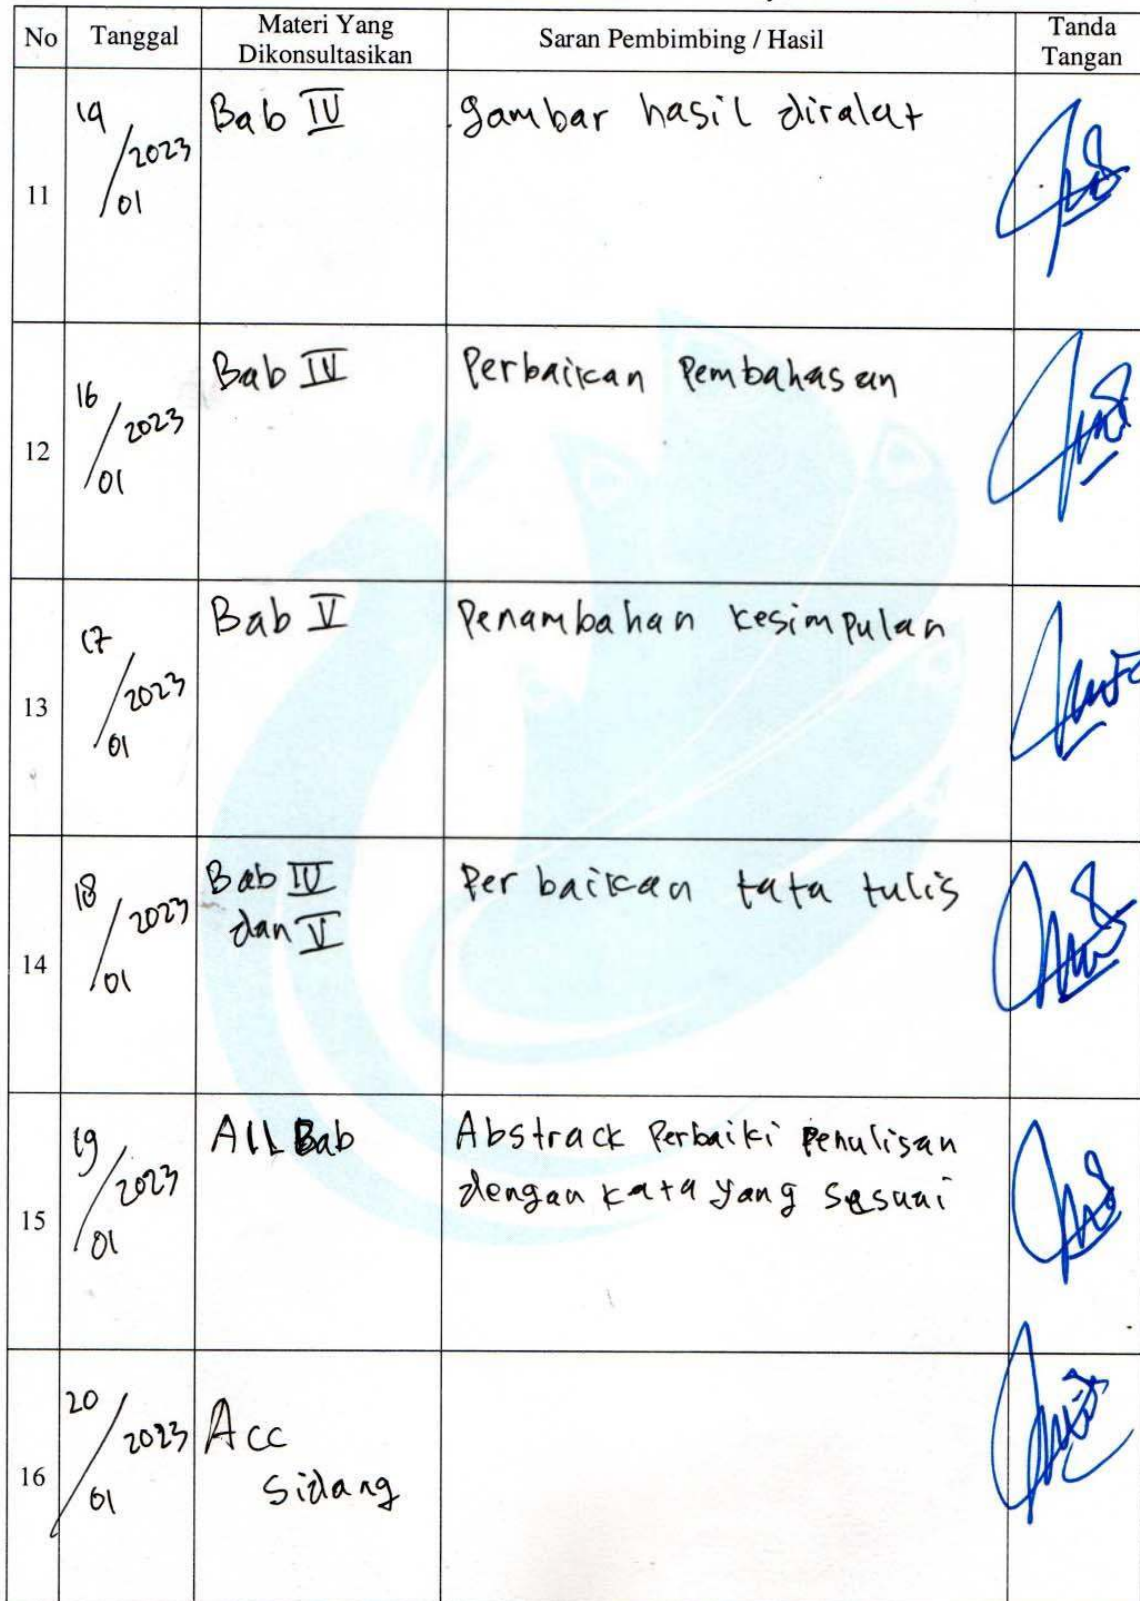 No Tanggal Materi Yang Dikonsultasikan Saran Pembimbing / Hasil Tanda Tangan
11 14/01/2023 Bab IV gambar hasil diralat
12 16/01/2023 Bab IV Perbaikan Pembahasan
13 17/01/2023 Bab V Penambahan kesimpulan
14 18/01/2023 Bab IV dan V Perbaikan tata tulis
15 19/01/2023 All Bab Abstrack Perbaiki Penulisan
dengan kata yang sesuai
16 20/01/2023 Acc
Sidang